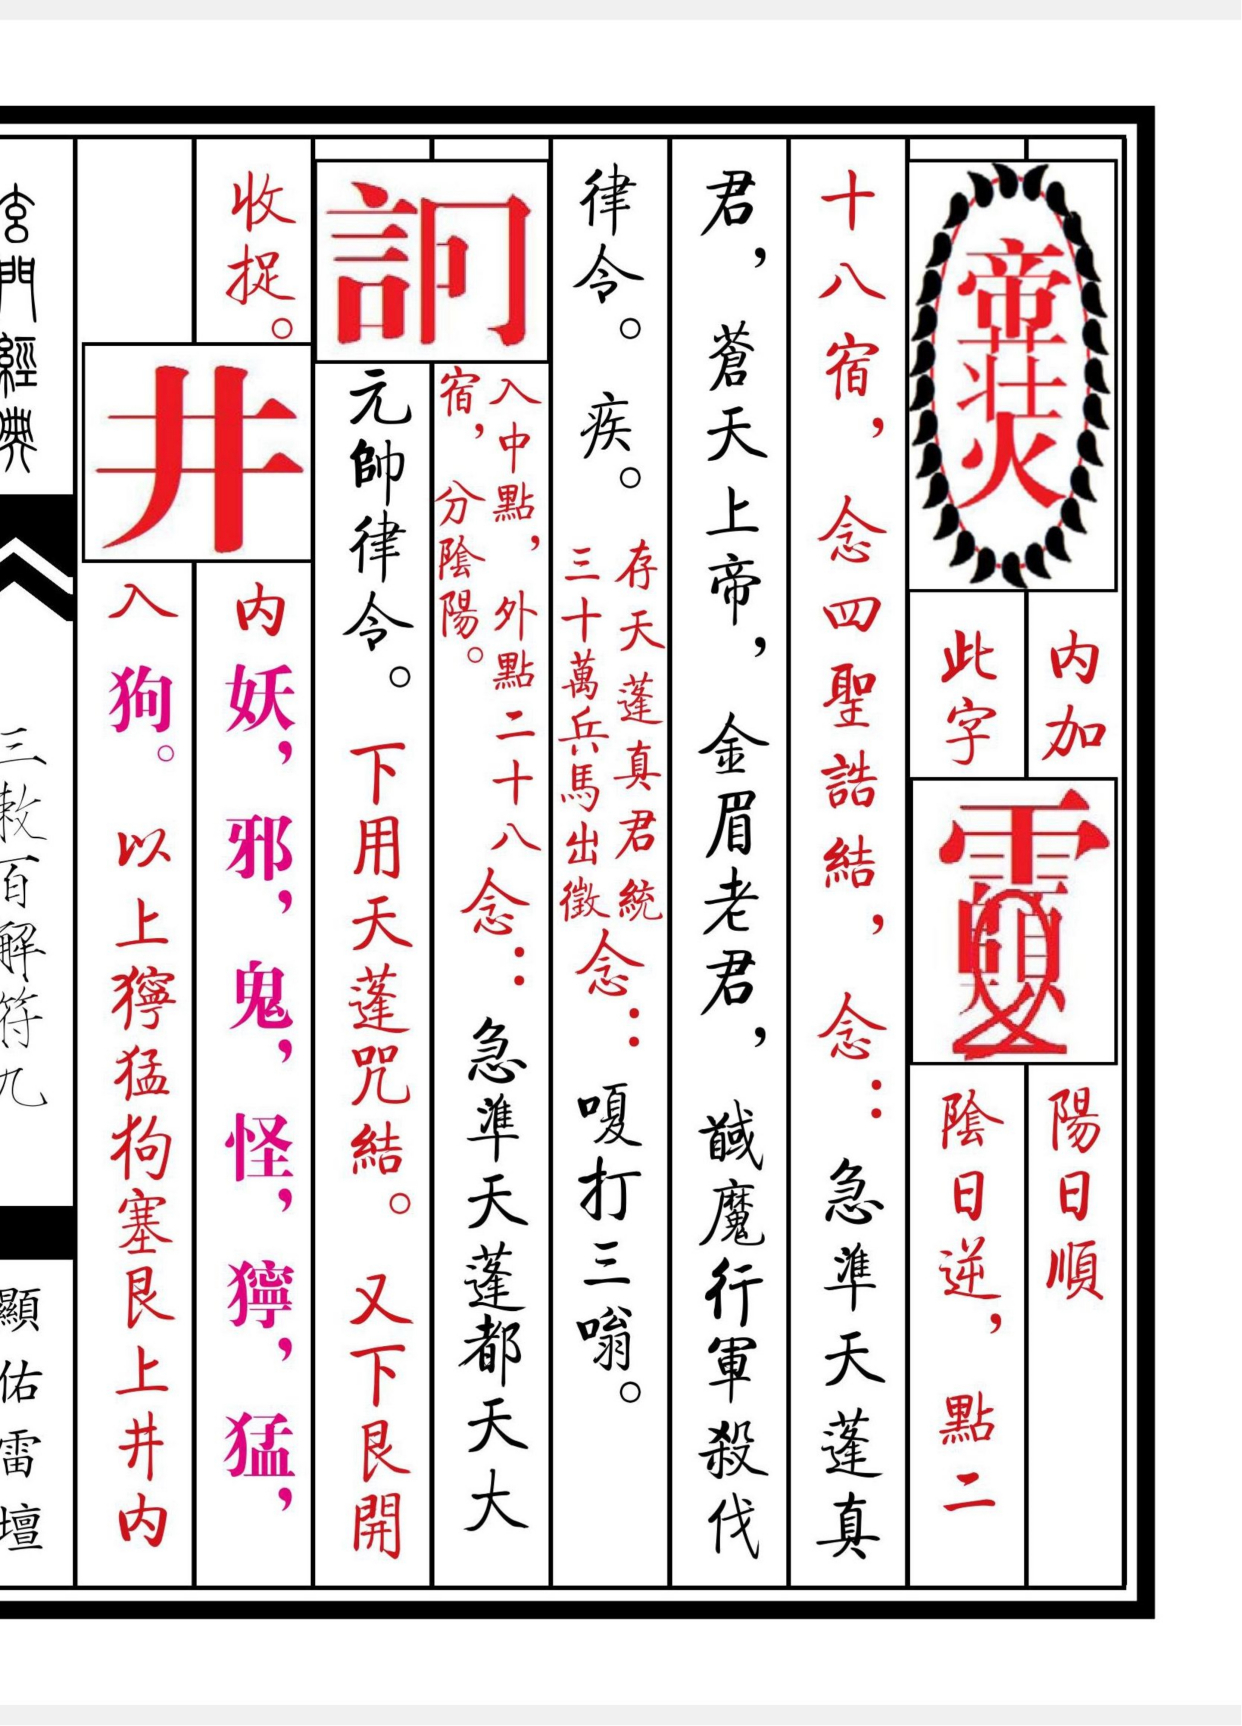 帝
荘
火
内加
此字
陽日順
陰日逆，點二
十八宿，念四聖誥結，念：急準天蓬真
君，蒼天上帝，金眉老君，馘魔行軍殺伐
律令。疾。
存天蓬真君統
三十萬兵馬出徵
念：嗄打三嗡。
入中點，外點二十八
宿，分陰陽。
念：急準天蓬都天大
元帥律令。下用天蓬咒結。又下艮開
收捉。
井
内妖，邪，鬼，怪，獰，猛，
入狗。以上獰猛狗塞艮上井内
玄門經典
三敕百解符九
顯佑雷壇